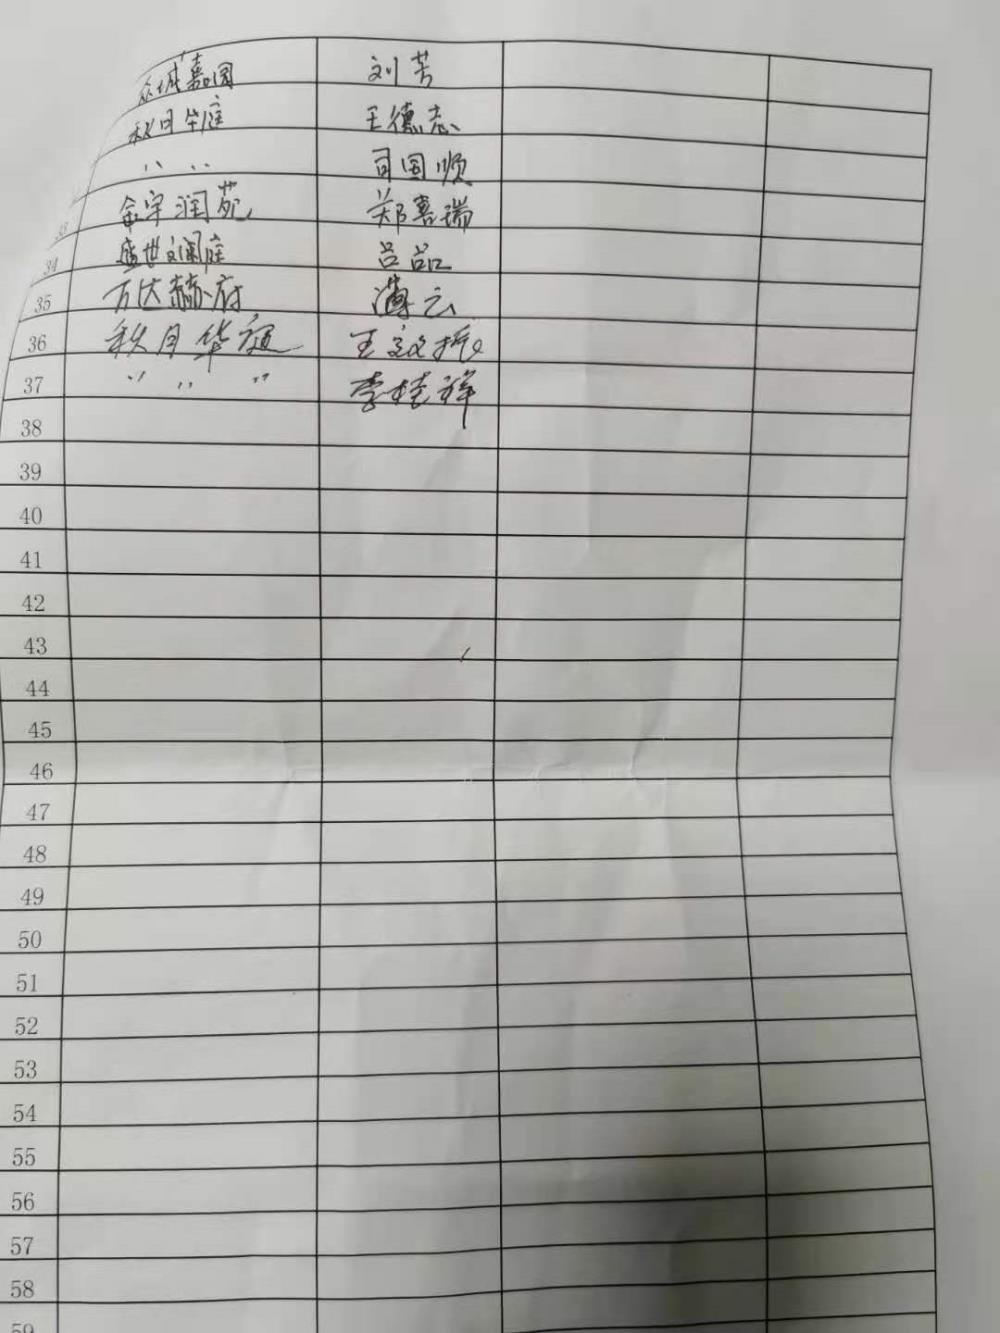 众城嘉园 刘芳
秋月华庭 王德志
〃 〃 司国顺
33 金宇润苑 郑喜瑞
34 盛世澜庭 吕品
35 万达赫府 薄云
36 秋月华庭 王
37 〃 〃 〃 李桂祥
38
39
40
41
42
43
44
45
46
47
48
49
50
51
52
53
54
55
56
57
58
59